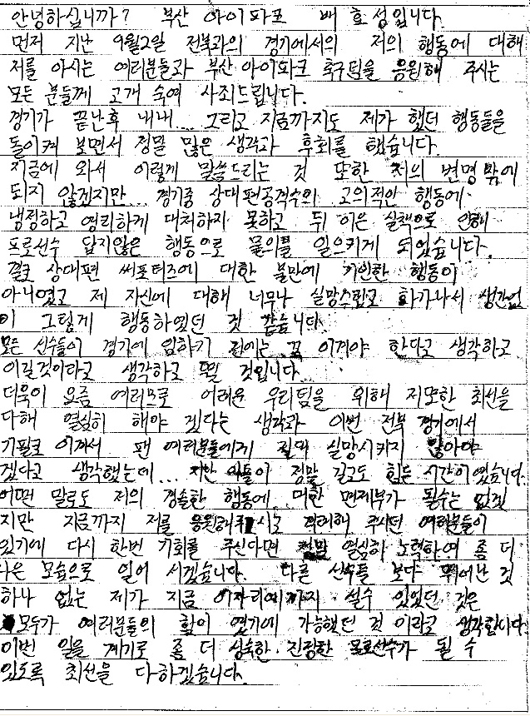 안녕하십니까? 부산 아이파크 배효성입니다.
먼저 지난 9월2일 전북과의 경기에서의 저의 행동에 대해
저를 아시는 여러분들과 부산아이파크 축구팀을 응원해 주시는
모든 분들께 고개 숙여 사죄드립니다.
경기가 끝난후 내내... 그리고 지금까지도 제가 했던 행동들을
돌이켜 보면서 정말 많은 생각과 후회를 했습니다.
지금에 와서 이렇게 말씀드리는 것 또한 저의 변명밖에
되지 않겠지만... 경기중 상대편공격수의 고의적인 행동에
냉정하고 영리하게 대처하지 못하고 뒤 이은 실책으로 인해
프로선수 답지않은 행동으로 물의를 일으키게 되었습니다.
결코 상대편 써포터즈에 대한 불만에 기인한 행동이
아니였고 제 자신에 대해 너무나 실망스럽고 화가나서 생각없
이 그렇게 행동하였던 것 같습니다.
모든 선수들이 경기에 임하기 전에는 꼭 이겨야 한다고 생각하고
이길것이라고 생각하고 뛸 것입니다...
더욱이 요즘 여러모로 어려운 우리팀을 위해 저또한 최선을
다해 열심히 해야 겠다는 생각과 이번 전북 경기에서
기필코 이겨서 팬 여러분들에게 절대 실망시키지 않아야
겠다고 생각했는데... 지난 이틀이 정말 길고도 힘든 시간이였습니다.
어떤 말로도 저의 경솔한 행동에 대한 면제부가 될수는 없겠
지만 지금까지 저를 응원해주시고 격려해 주시던 여러분들이
있기에 다시 한번 기회를 주신다면 정말 열심히 노력하여 좀 더
나은 모습으로 일어 서겠습니다. 다른 선수들 보다 뛰어난 것
하나 없는 제가 지금 이자리에까지 설수 있었던 것은
모두가 여러분들의 힘이 였기에 가능했던 것 이라고 생각합니다.
이번 일을 계기로 좀 더 성숙한 진정한 프로선수가 될 수
있도록 최선을 다하겠습니다.